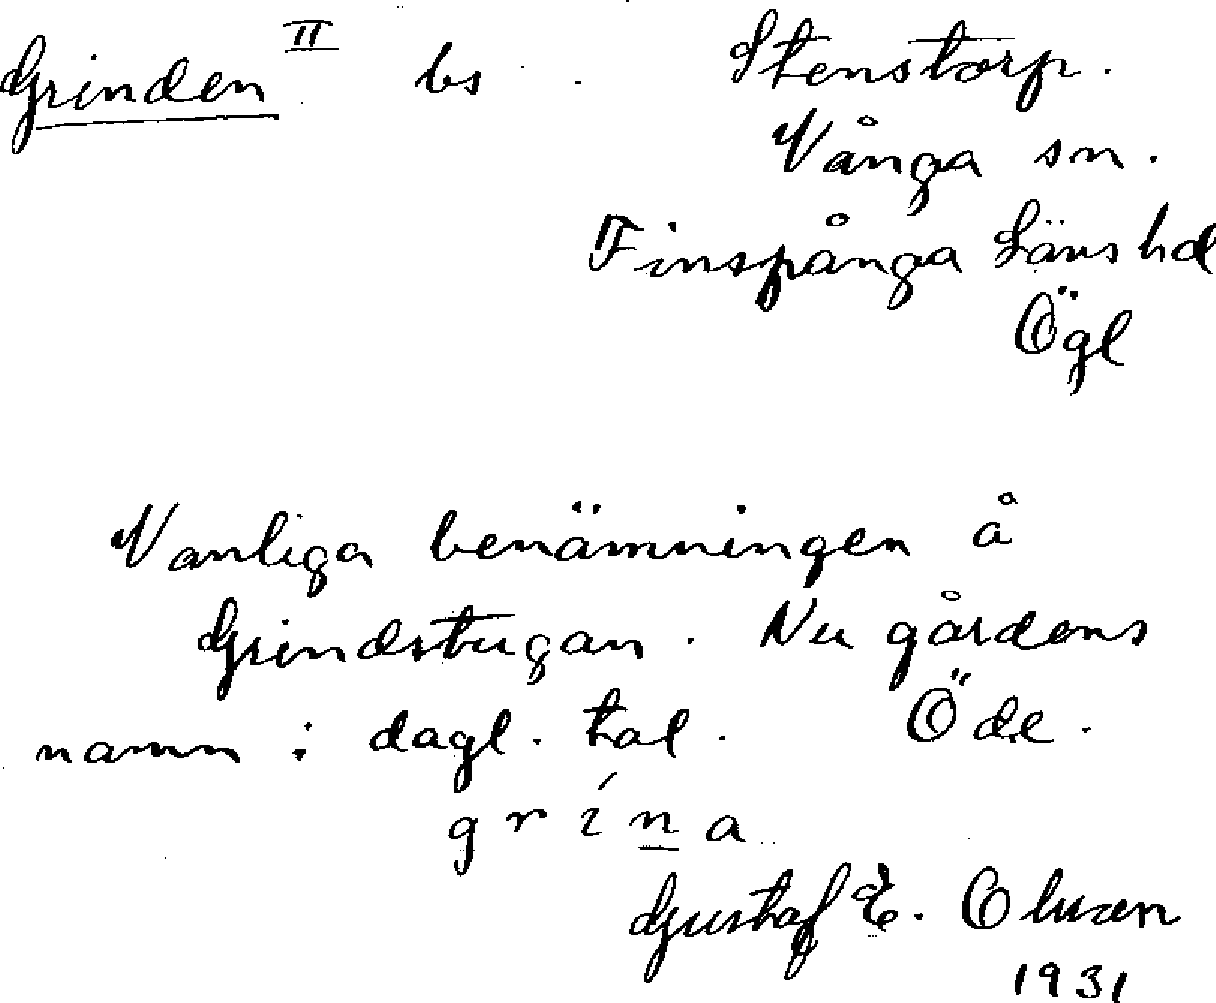 Grinden II bs. Stenstorp.
Vånga sn.
Finspånga Läns hd
Ögl
Vanliga benämningen å
Grindstugan. Nu gårdens
namn i dagl. tal. Öde.
grína
Gustaf E. Olsson
1931